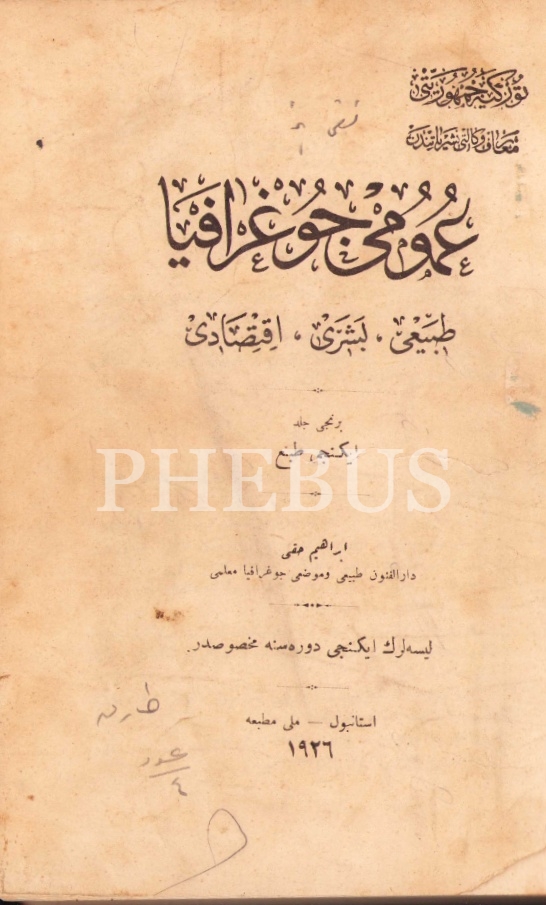 توركيه جمهوريتى
معارف وكالتى نشرياتندن
عمومى جوغرافيا
طبيعى ، بشرى ، اقتصادى
برنجى جلد
ايكنجى طبع
PHEBUS
ابراهيم حقى
دارالفنون طبيعى وموضعى جوغرافيا معلمى
ليسه‌لرك ايكنجى دوره‌سنه مخصوصدر.
استانبول — ملى مطبعه
١٩٢٦
عدد
٤